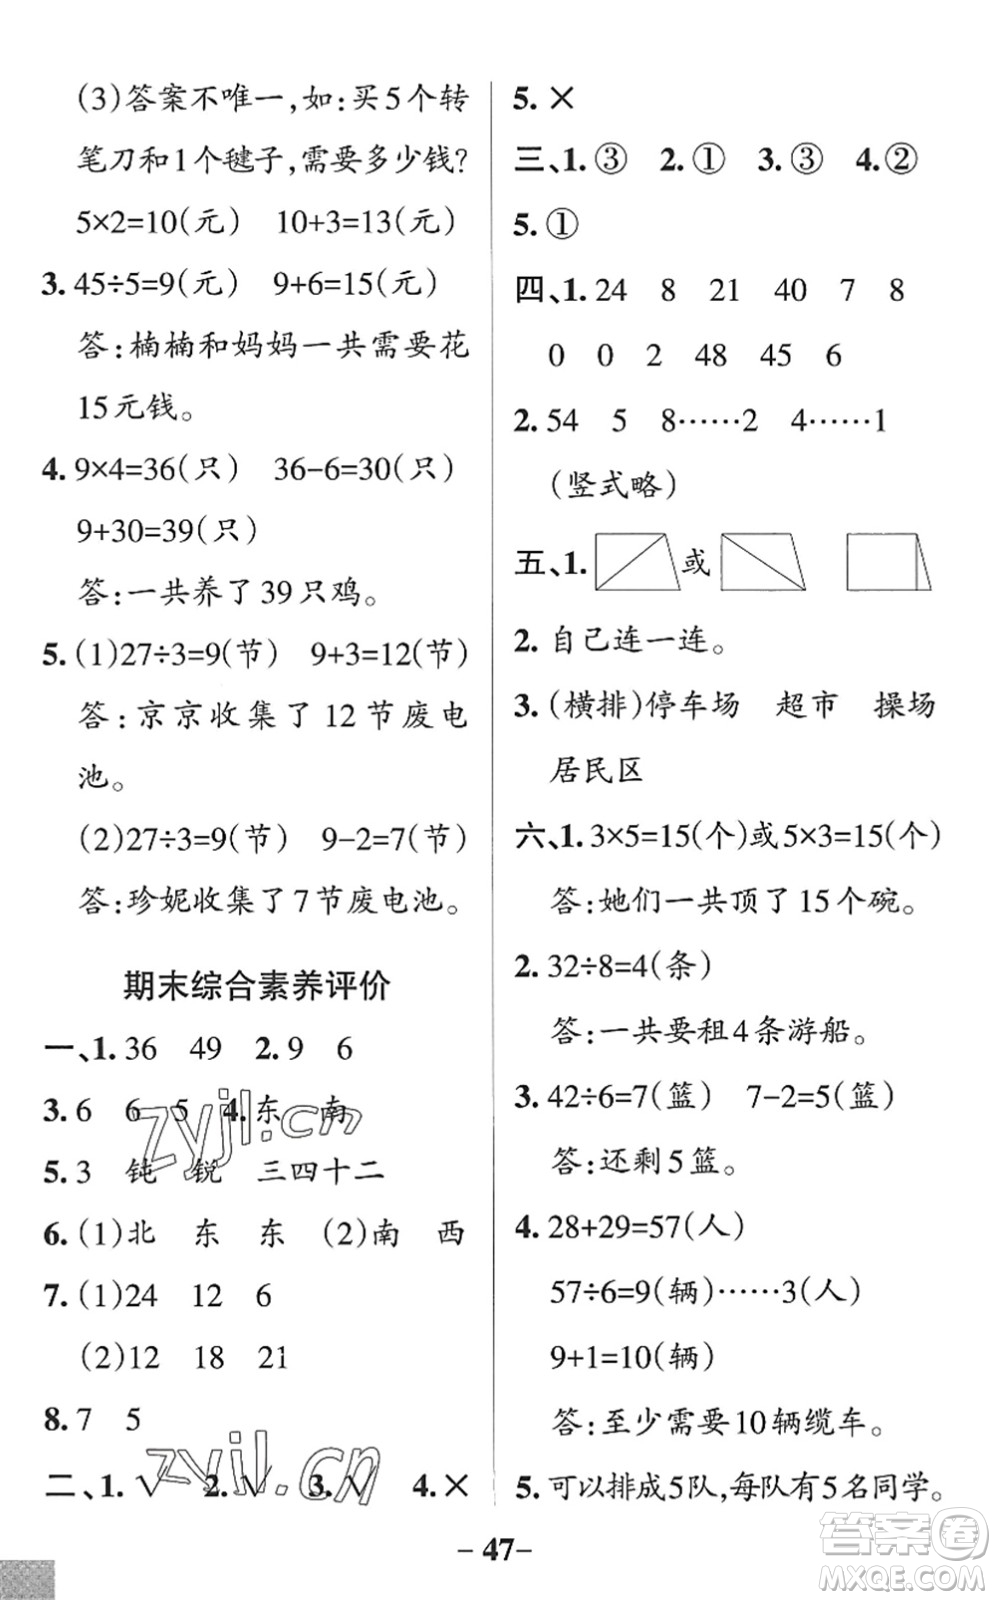 (3)答案不唯一,如:买5个转
笔刀和1个毽子,需要多少钱?
5×2=10(元) 10+3=13(元)
3. 45÷5=9(元) 9+6=15(元)
答:楠楠和妈妈一共需要花
15元钱。
4. 9×4=36(只) 36-6=30(只)
9+30=39(只)
答:一共养了39只鸡。
5. (1)27÷3=9(节) 9+3=12(节)
答:京京收集了12节废电
池。
(2)27÷3=9(节) 9-2=7(节)
答:珍妮收集了7节废电池。
期末综合素养评价
一、1. 36 49 2. 9 6
3. 6 6 5 4. 东 南
5. 3 钝 锐 三四十二
6. (1)北 东 东 (2)南 西
7. (1)24 12 6
(2)12 18 21
8. 7 5
二、1. √ 2. √ 3. √ 4. ×
5. ×
三、1. ③ 2. ① 3. ③ 4. ②
5. ①
四、1. 24 8 21 40 7 8
0 0 2 48 45 6
2. 54 5 8……2 4……1
(竖式略)
五、1. 或
2. 自己连一连。
3. (横排)停车场 超市 操场
居民区
六、1. 3×5=15(个)或5×3=15(个)
答:她们一共顶了15个碗。
2. 32÷8=4(条)
答:一共要租4条游船。
3. 42÷6=7(篮) 7-2=5(篮)
答:还剩5篮。
4. 28+29=57(人)
57÷6=9(辆)……3(人)
9+1=10(辆)
答:至少需要10辆缆车。
5. 可以排成5队,每队有5名同学。
-47-
zyjl.cn
zyjl.cn
答案圈
MXQE.COM